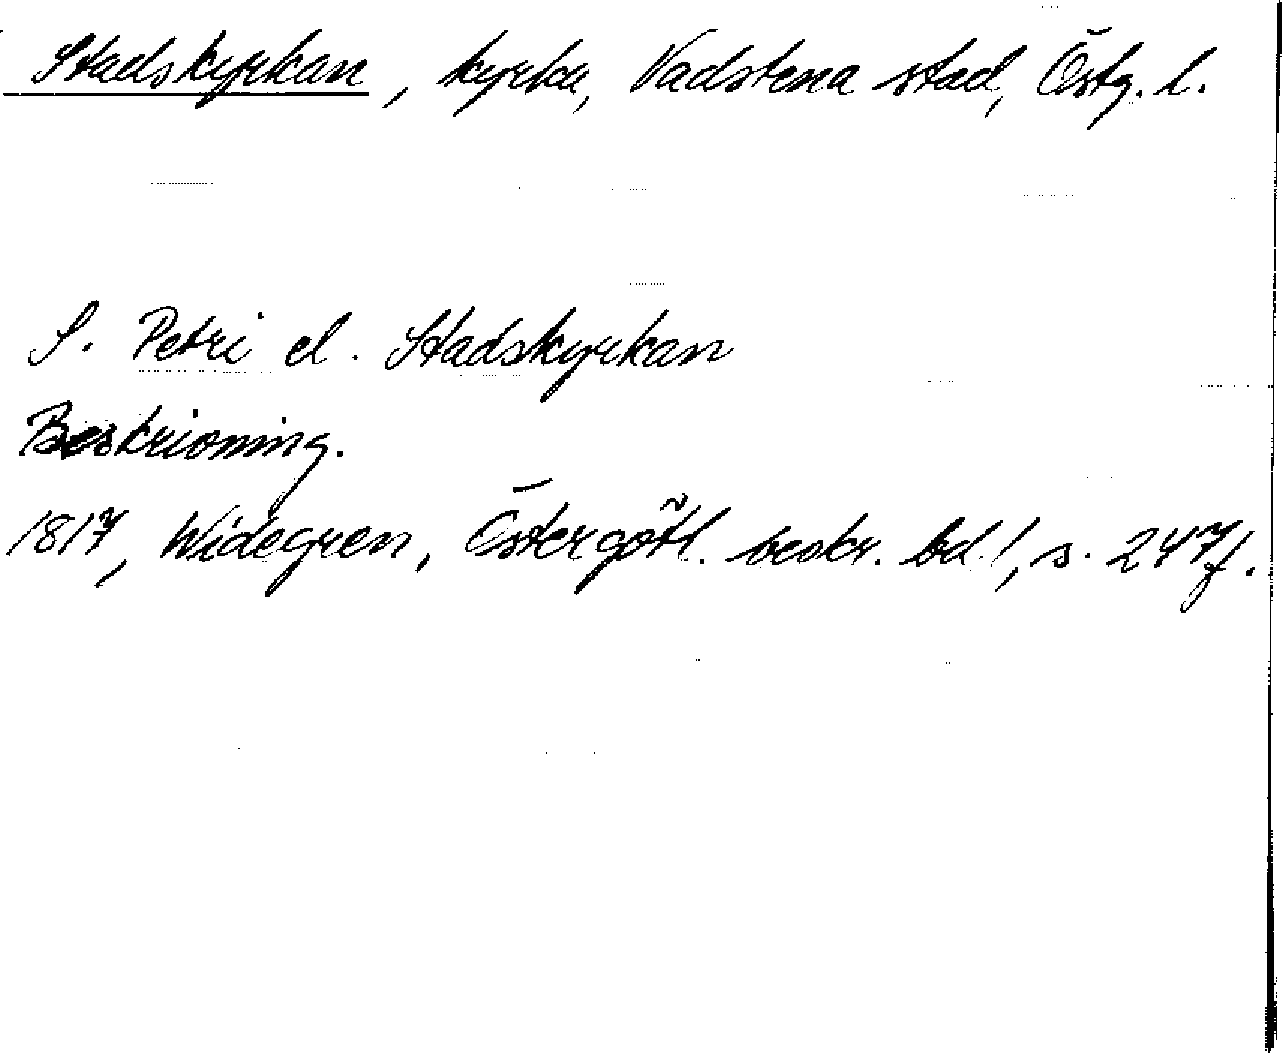 Stadskyrkan, kyrka, Vadstena stad, Östg. l.
S. Petri el. Stadskyrkan
Beskrivning.
1817, Widegren, Östergötl. beskr. bd. 1, s. 247f.